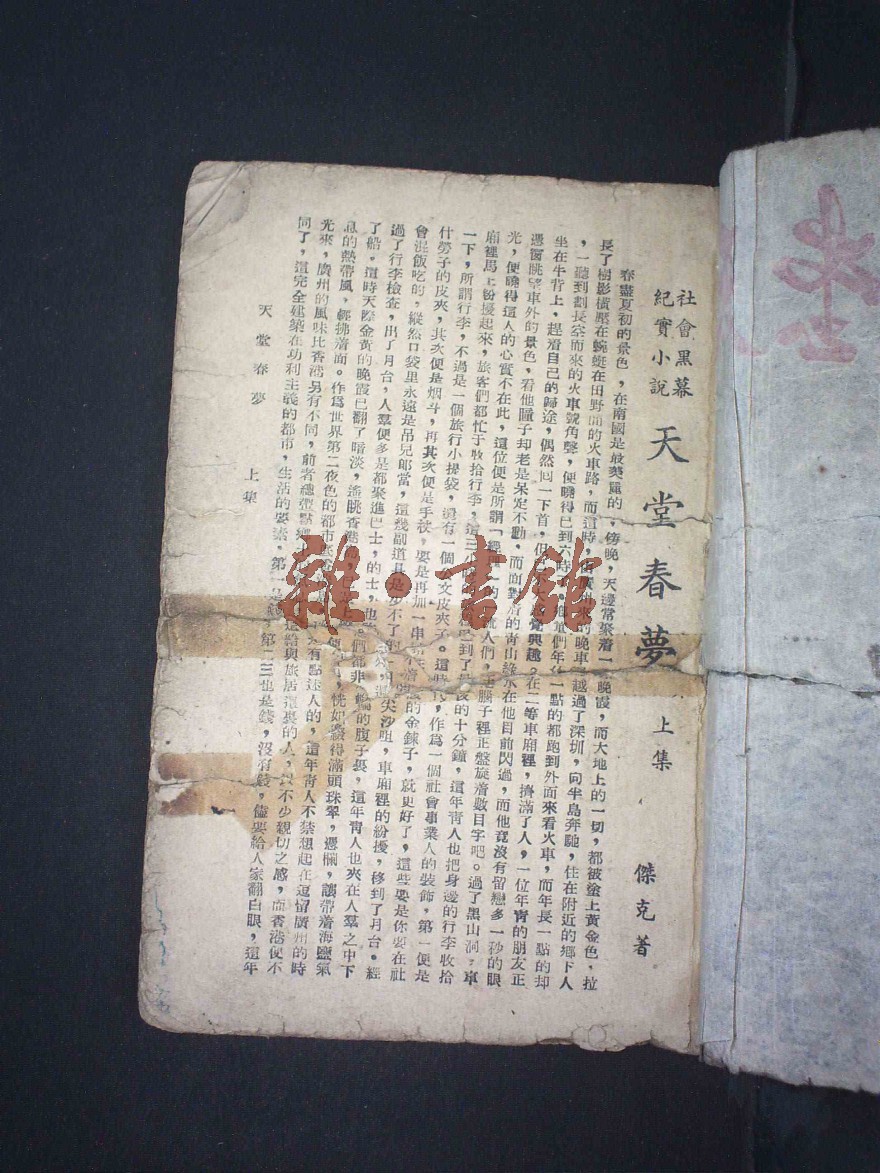 社會黑幕
紀實小說
天堂春夢
上集
傑克著
春盡夏初的景色,在南國是最美麗的,傍晚,天邊常聚着晚霞,而大地上的一切,都被塗上黃金色,拉
長了樹影橫壓在蜿蜒在田野間的火車路,而這時,來的晚車越過了深圳,向半島奔馳,住在附近的鄉下人
,一聽到劃長空而來的火車號角聲,便曉得已到六時一點的都跑到外面來看火車,而年長一點的却
坐在牛背上,趕着自己的歸途,偶然回一下首,但覺興趣。在二等車廂裡,擠滿了人,一位年靑的朋友正
憑窗眺望車外的景色,看他瞳子却老是呆定不動,而面對着的靑山綠水在他目前閃過,而他竟沒有留戀多一秒的眼
光,便曉得這人的心實不在此,這位便是所謂「經的人們,在腦子裡正盤旋着數目字吧。過了黑山洞,車
廂裡馬上紛擾起來,旅客們都忙于收拾行李,這三小時到了最後的十分鐘,這年靑人也把身邊的行李收拾
一下,所謂行李,不過是一個旅行小提袋,還有一個文皮夾子。這時代,作爲一個社會事業人的裝飾,第一便是
什勞子的皮夾,其次便是烟斗,再其次便是手杖,要是再加一串着的金鍊子,就更好了,這些要是你要在社
會混飯吃的,縱然口袋里永遠是吊兒郎當,這幾副道具是少不了的。過尖沙咀,車廂裡的紛擾,移到了月台。經
過了行李檢查,出了月台,人羣便多是都聚進巴士,的士,也們都非輪的腹子裹,這年靑人也夾在人羣之中下
了船。這時天際金黃的晚霞已翻了暗淡,遙眺香港恍如綴得滿頭珠翠,憑欄,讓帶着海鹽氣
息的熱帶風,輕拂着面。作爲世界第二夜色的都市底香港是有點迷人的,這年靑人不禁想起在逗留廣州的時
光來,廣州的風味比香港另有不同,前者總帶點鄉土給與旅居這裹的人,不少親切之感,而香港便不
同了,這完全建築在功利主義的都市,生活的要素,第一是錢,第二三也是錢,沒有錢,儘要給人家翻白眼,這年
天堂春夢 上集
雜·書館